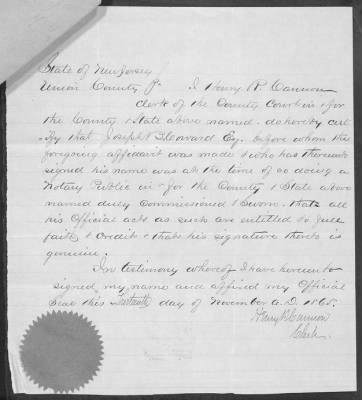 State of New Jersey
Union County ss I Henry R. Cannon
Clerk of the County Court in & for
the County & State above named - do hereby cert
-ify that Joseph B. Coward Esq. before whom the
foregoing affidavit was made & who has thereunto
signed his name was at the time of so doing a
Notary Public in & for the County & State above
named duly Commissioned & Sworn - that all
his Official acts as such are entitled to full
faith & Credit & that his signature thereto is
genuine.
In testimony whereof I have hereunto
signed my name and affixed my Official
Seal this day of November A.D. 1865.
Henry R. Cannon
Clerk.